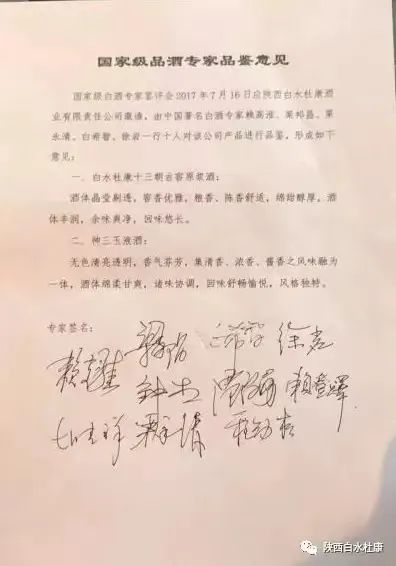 国家级品酒专家品鉴意见
国家级白酒专家鉴评会2017年7月16日应陕西白水杜康酒
业有限责任公司邀请，由中国著名白酒专家赖高淮、梁邦昌、栗
永清、白希智、徐岩一行十人对该公司产品进行品鉴，形成如下
意见：
一、白水杜康十三朝古窖原浆酒：
酒体晶莹剔透，窖香优雅，粮香、陈香舒适，绵甜醇厚，酒
体丰润，余味爽净，回味悠长。
二、神三玉液酒：
无色清亮透明，香气芬芳，集清香、浓香、酱香之风味融为
一体，酒体绵柔甘爽，诸味协调，回味舒畅愉悦，风格独特。
专家签名：
赖高淮 梁邦昌 白希智 徐岩
赖登燡
栗永清
陕西白水杜康